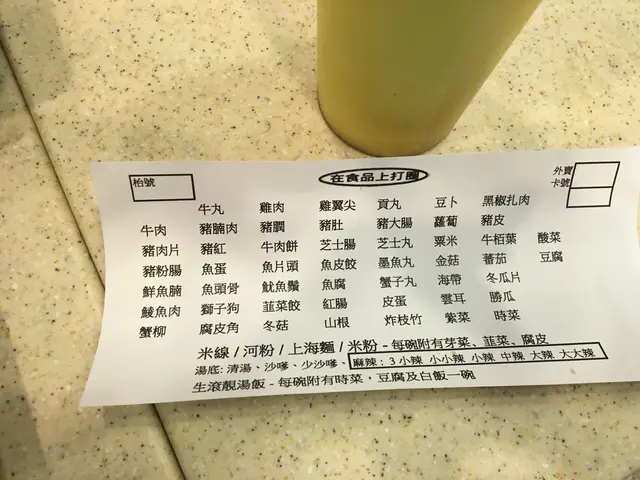 枱號
在食品上打圈
外賣
卡號
牛丸 雞肉 雞翼尖 貢丸 豆卜 黑椒扎肉
牛肉 豬腩肉 豬膶 豬肚 豬大腸 蘿蔔 豬皮
豬肉片 豬紅 牛肉餅 芝士腸 芝士丸 粟米 牛栢葉 酸菜
豬粉腸 魚蛋 魚片頭 魚皮餃 墨魚丸 金菇 蕃茄 豆腐
鮮魚腩 魚頭骨 魷魚鬚 魚腐 蟹子丸 海帶 冬瓜片
鯪魚肉 獅子狗 韮菜餃 紅腸 皮蛋 雲耳 勝瓜
蟹柳 腐皮角 冬菇 山根 炸枝竹 紫菜 時菜
米線/河粉/上海麵/米粉-每碗附有芽菜、韮菜、腐皮
湯底:清湯、沙嗲、少沙嗲、麻辣:3小辣 小小辣 小辣 中辣 大辣 大大辣
生滾靚湯飯-每碗附有時菜,豆腐及白飯一碗